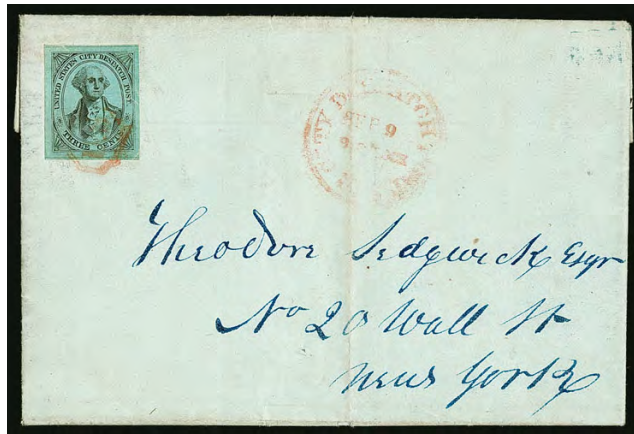 UNITED STATES CITY DESPATCH POST.
THREE CENTS
CITY DESPATCH
SEP 9
9
Theodore Sedgwick Esqr
No 20 Wall St
New York